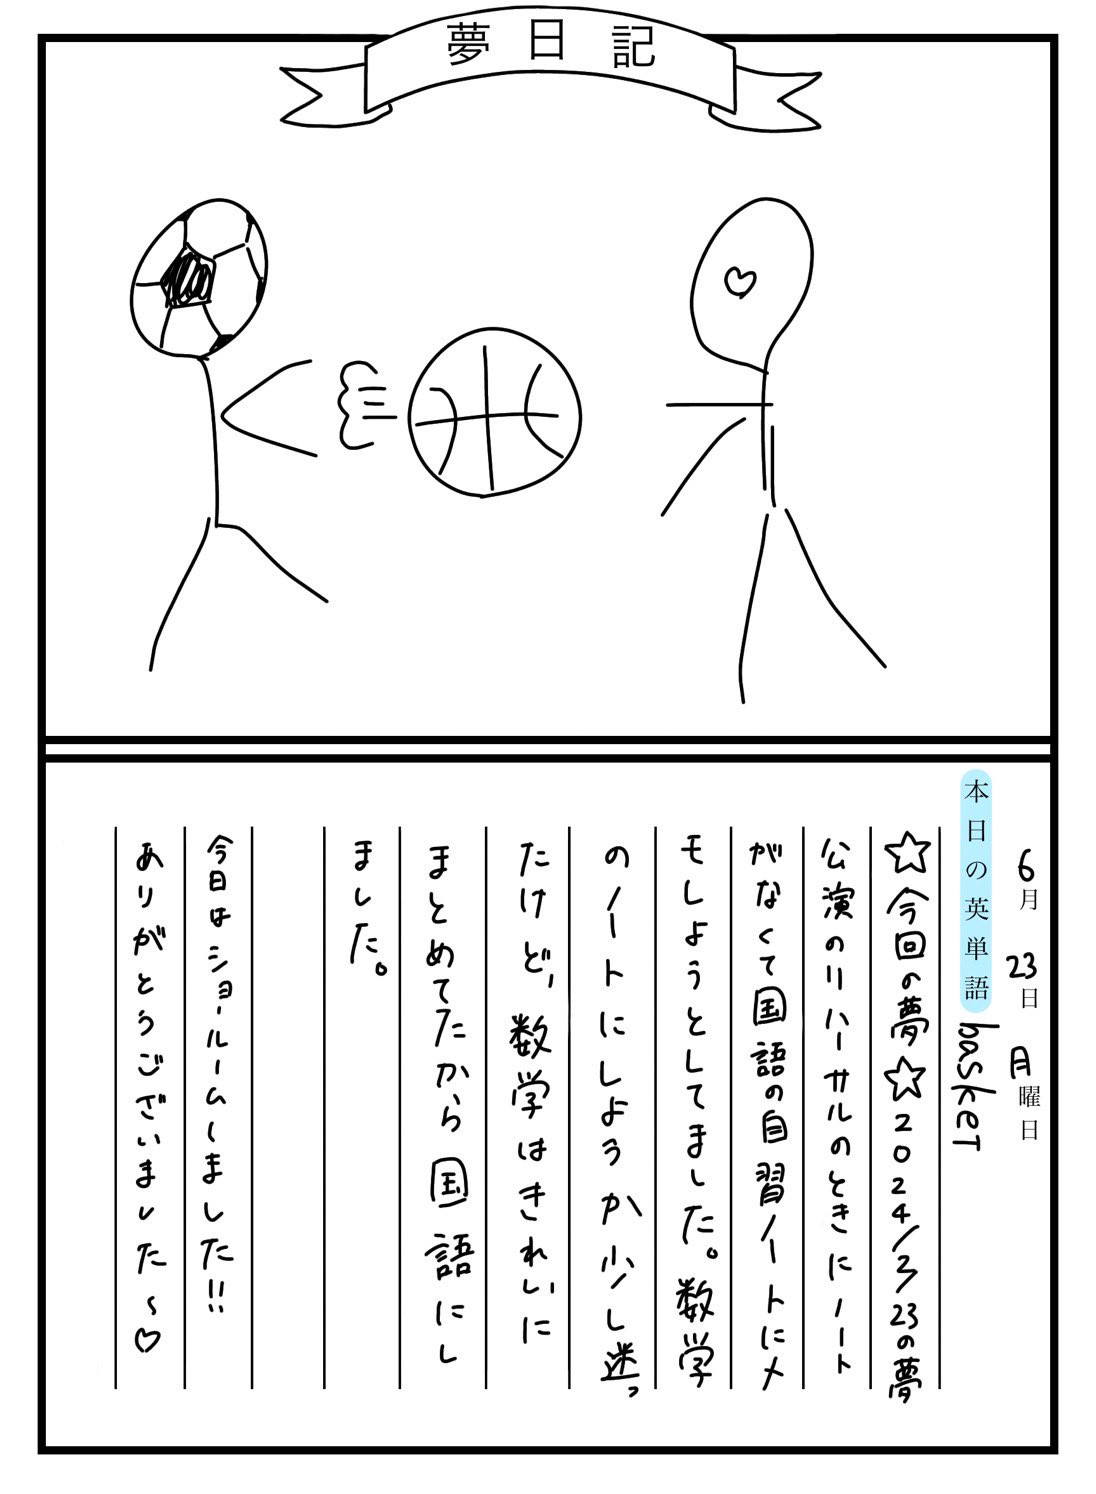 夢日記
6月 23日 月曜日
本日の英単語 basket
☆今回の夢☆2024/3/23の夢
公演のリハーサルのときにノート
がなくて国語の自習ノートにメ
モしようとしてました。数学
のノートにしようか少し迷っ
たけど、数学はきれいに
まとめてたから国語にし
ました。
今日はショールームしました!!
ありがとうございました〜♡